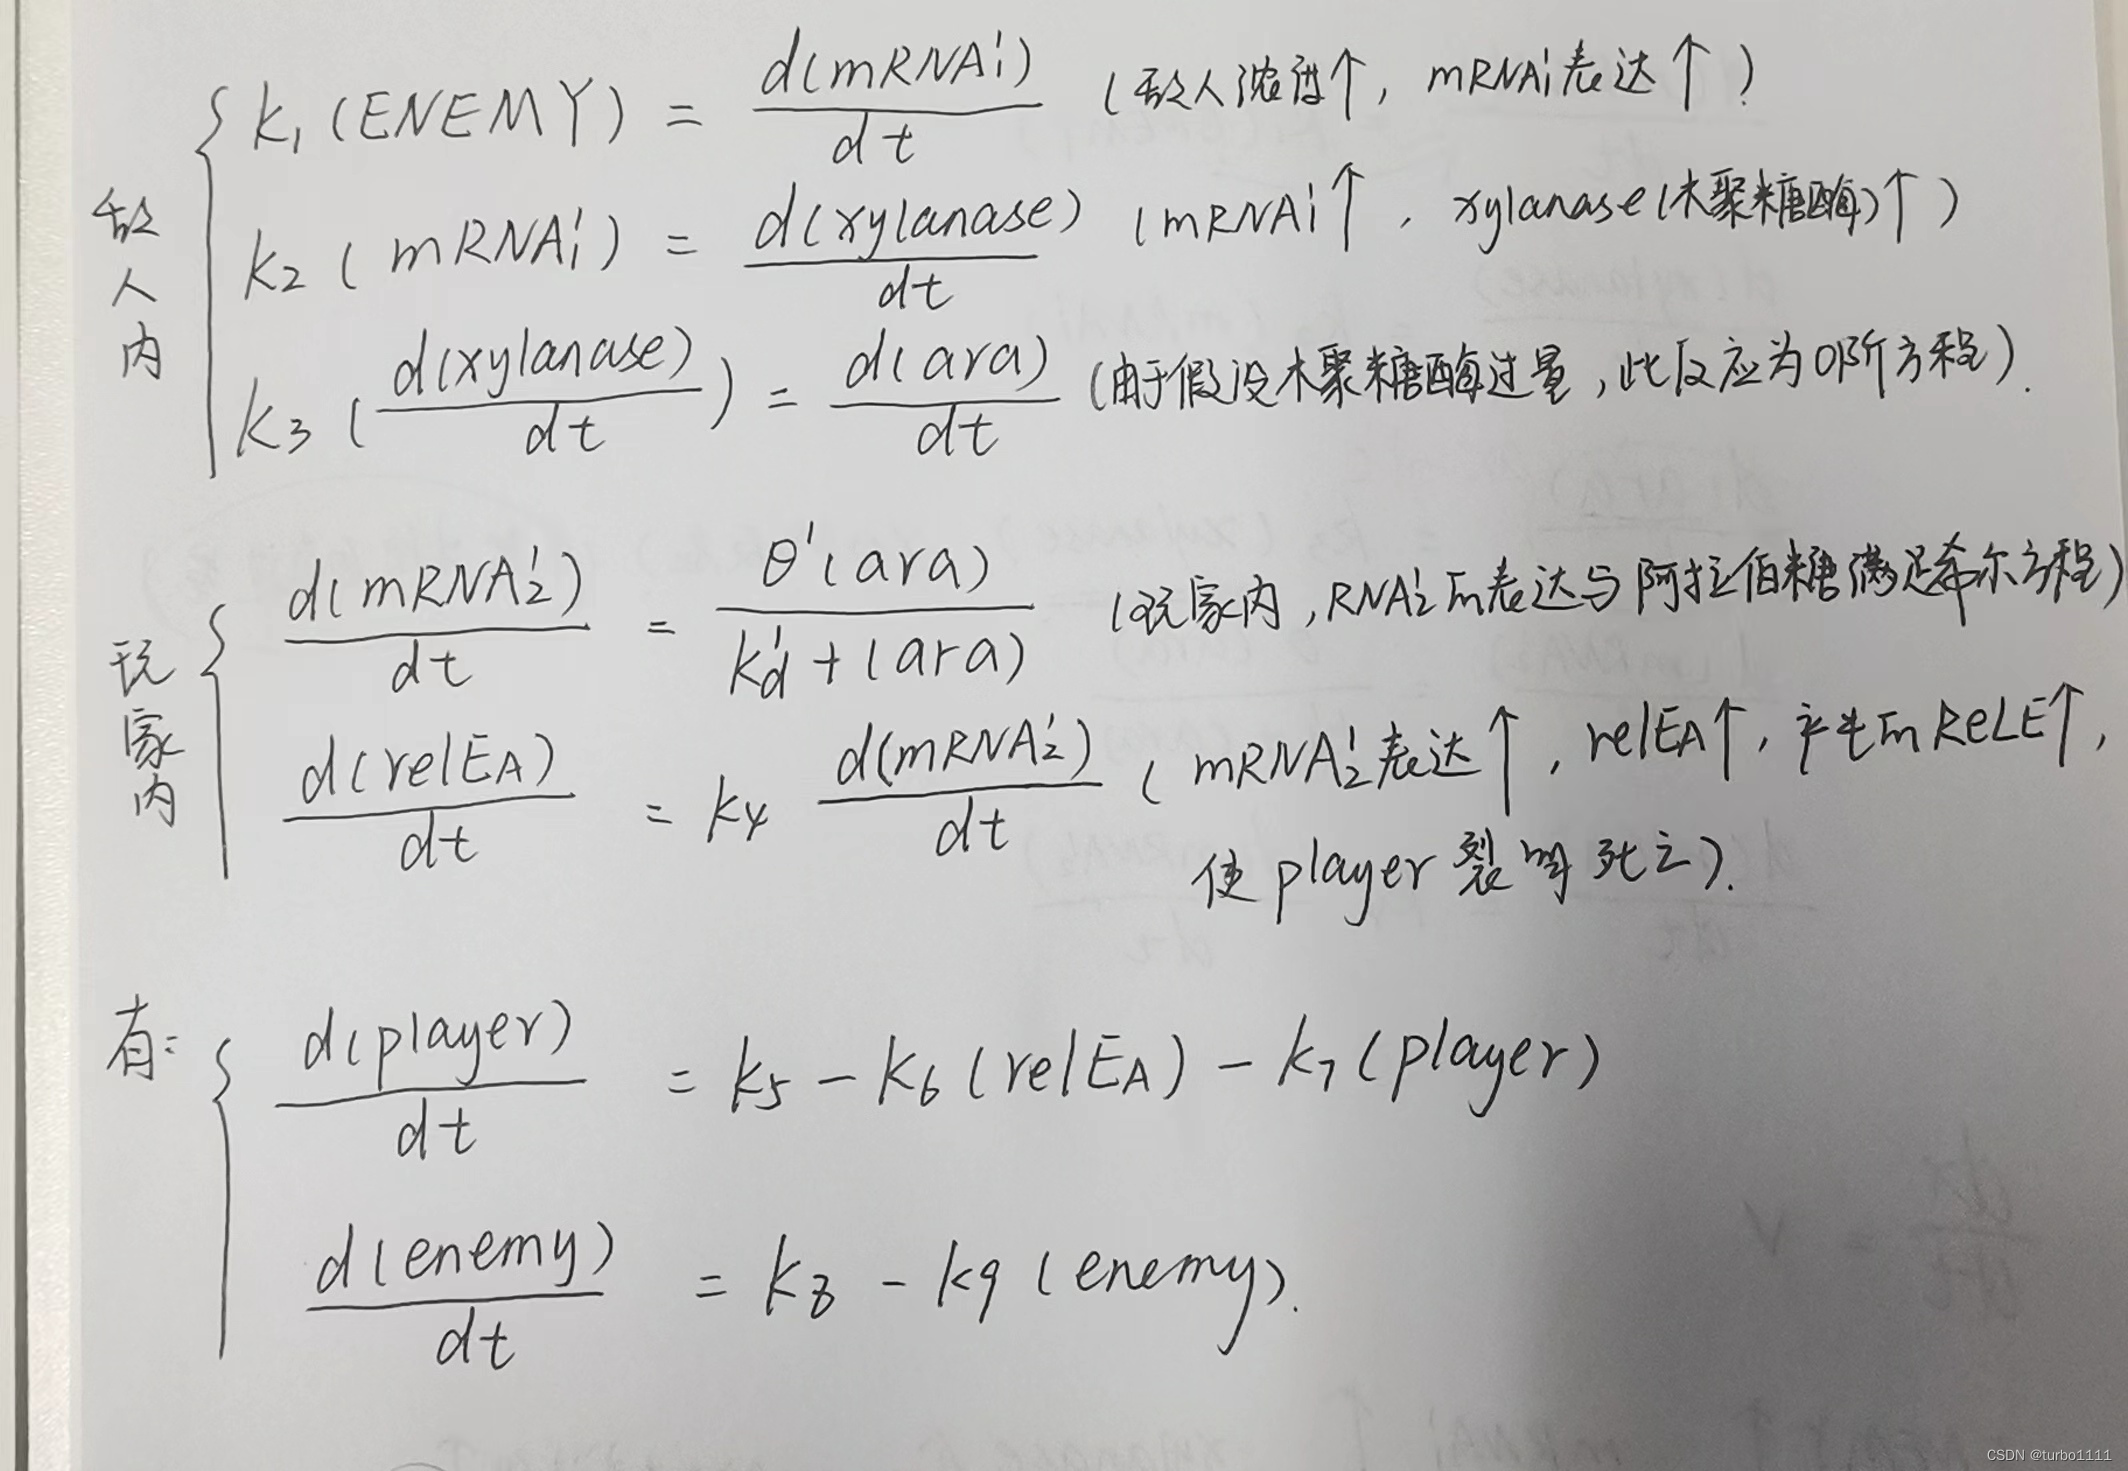 敌人内
k₁(ENEMY) = d(mRNA₁')/dt (敌人浓度↑, mRNA₁'表达↑)
k₂(mRNA₁') = d(xylanase)/dt (mRNA₁'↑, xylanase(木聚糖酶)↑)
k₃(d(xylanase)/dt) = d(ara)/dt (由于假设木聚糖酶过量,此反应为0阶方程).
玩家内
d(mRNA₂')/dt = θ'(ara)/(k'd+(ara)) (玩家内,RNA₂'的表达与阿拉伯糖满足希尔方程)
d(relEA)/dt = k₄ d(mRNA₂')/dt (mRNA₂'表达↑, relEA↑, 产生的ReLE↑,
使player裂解死亡).
有:
d(player)/dt = k₅ - k₆(relEA) - k₇(player)
d(enemy)/dt = k₈ - k₉(enemy).
CSDN @turbo1111